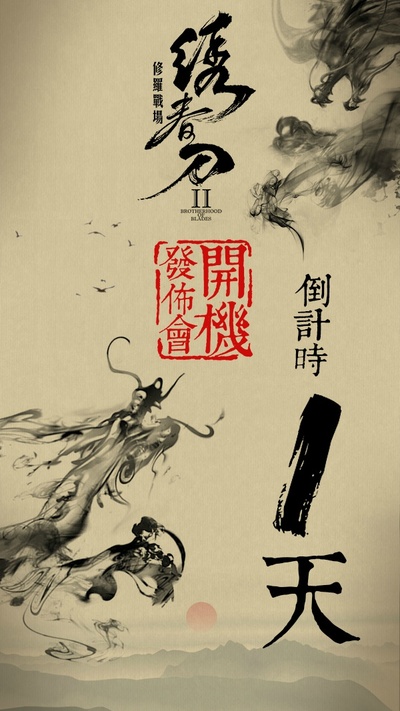 绣春刀
修羅戰場
II
BROTHERHOOD
OF
BLADES
開機
發佈會
倒計時
1天